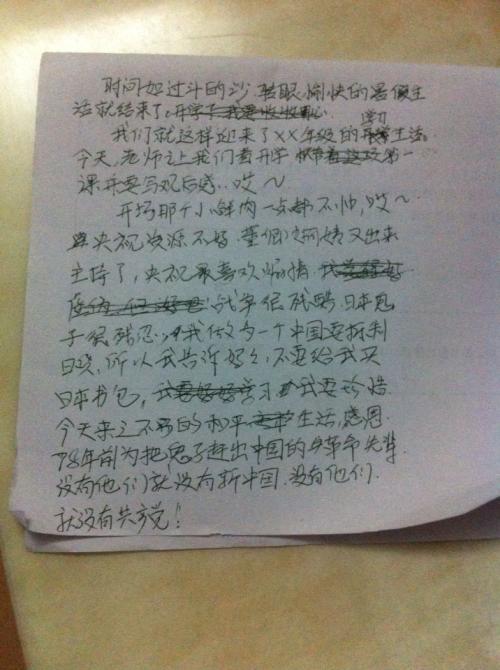 时间如过斗的沙.转眼愉快的暑假生
活就结束了.开学了我要收收心.
学习
我们就这样迎来了XX年级的开学生活。
今天,老师让我们看开学第一
课并要写观后感..哎~
开场那个小鲜肉一点都不帅,哎~
央视资源不好.董卿姨又出来
主持了,央视最喜欢煽情.
战争很残酷.日本鬼
子很残忍,我做为一个中国要抵制
日货,所以我告诉妈妈,不要给我买
日本书包,我要好好学习我要珍惜
今天来之不易的和平生活,感恩
78年前为把鬼子赶出中国的革命先辈.
没有他们就没有新中国.没有他们
就没有共产党!